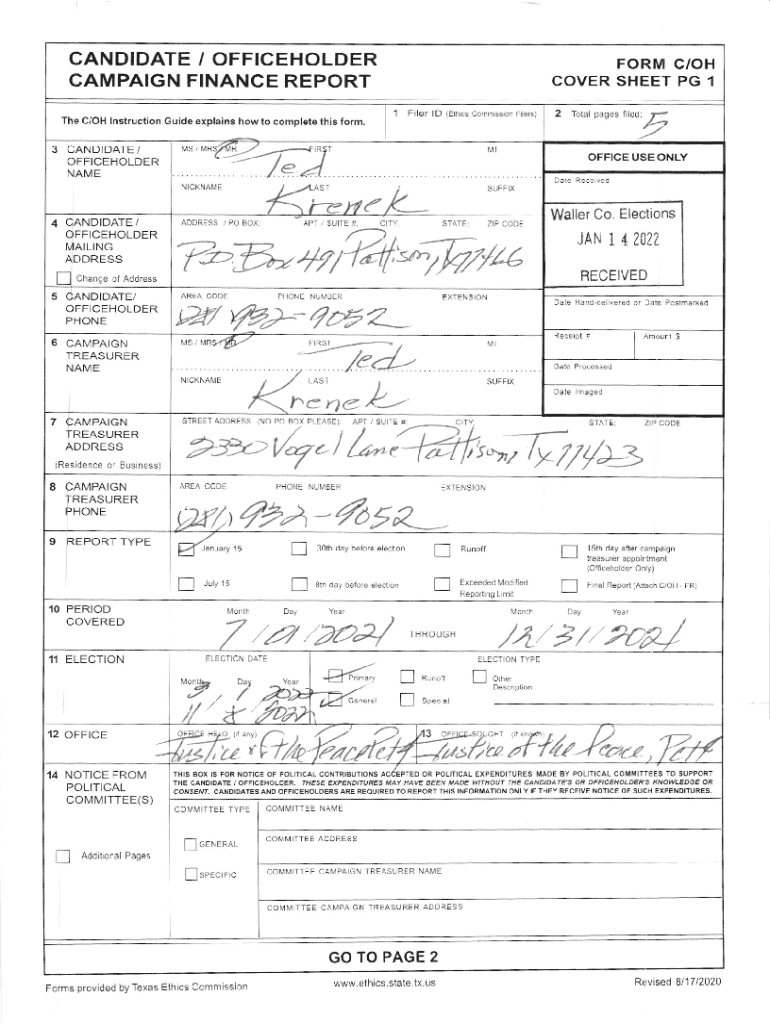 CANDIDATE / OFFICEHOLDER
CAMPAIGN FINANCE REPORT
FORM C/OH
COVER SHEET PG 1
The C/OH Instruction Guide explains how to complete this form.
1 Filer ID (Ethics Commission Filers)
2 Total pages filed: 5
3 CANDIDATE / OFFICEHOLDER NAME
MS / MRS / MR FIRST MI
Ted
NICKNAME LAST SUFFIX
Krenek
OFFICE USE ONLY
Date Received
Waller Co. Elections
JAN 14 2022
RECEIVED
4 CANDIDATE / OFFICEHOLDER MAILING ADDRESS
Change of Address
ADDRESS / PO BOX; APT / SUITE #; CITY; STATE; ZIP CODE
P.O. Box 491 Pattison, Tx 77466
5 CANDIDATE/ OFFICEHOLDER PHONE
AREA CODE PHONE NUMBER EXTENSION
(281) 932-9052
Date Hand-delivered or Date Postmarked
Receipt # Amount $
Date Processed
Date Imaged
6 CAMPAIGN TREASURER NAME
MS / MRS / MR FIRST MI
Ted
NICKNAME LAST SUFFIX
Krenek
7 CAMPAIGN TREASURER ADDRESS
(Residence or Business)
STREET ADDRESS (NO PO BOX PLEASE); APT / SUITE #; CITY; STATE; ZIP CODE
2330 Vogel Lane Pattison, Tx 77423
8 CAMPAIGN TREASURER PHONE
AREA CODE PHONE NUMBER EXTENSION
(281) 932-9052
9 REPORT TYPE
January 15 30th day before election Runoff 15th day after campaign treasurer appointment (Officeholder Only)
July 15 8th day before election Exceeded Modified Reporting Limit Final Report (Attach C/OH - FR)
10 PERIOD COVERED
Month Day Year Month Day Year
7/01/2021 THROUGH 12/31/2021
11 ELECTION
ELECTION DATE ELECTION TYPE
Month Day Year
1 2022
11 / 8 / 2022
Primary Runoff Other Description
General Special
12 OFFICE
OFFICE HELD (if any)
Justice of the Peace Pct 4
13 OFFICE SOUGHT (if known)
Justice of the Peace, Pct 4
14 NOTICE FROM POLITICAL COMMITTEE(S)
Additional Pages
THIS BOX IS FOR NOTICE OF POLITICAL CONTRIBUTIONS ACCEPTED OR POLITICAL EXPENDITURES MADE BY POLITICAL COMMITTEES TO SUPPORT
THE CANDIDATE / OFFICEHOLDER. THESE EXPENDITURES MAY HAVE BEEN MADE WITHOUT THE CANDIDATE'S OR OFFICEHOLDER'S KNOWLEDGE OR
CONSENT. CANDIDATES AND OFFICEHOLDERS ARE REQUIRED TO REPORT THIS INFORMATION ONLY IF THEY RECEIVE NOTICE OF SUCH EXPENDITURES.
COMMITTEE TYPE COMMITTEE NAME
GENERAL
COMMITTEE ADDRESS
SPECIFIC
COMMITTEE CAMPAIGN TREASURER NAME
COMMITTEE CAMPAIGN TREASURER ADDRESS
GO TO PAGE 2
Forms provided by Texas Ethics Commission www.ethics.state.tx.us Revised 8/17/2020